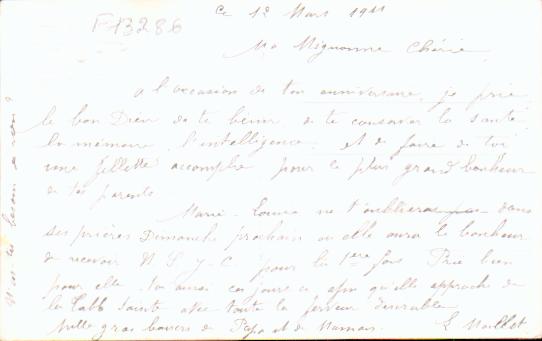 FB286
Ce 12 Mars 1911
Ma Mignonne Chérie
A l'occasion de ton anniversaire, je prie
le bon Dieu de te bénir, de te conserver la santé
la mémoire, l'intelligence, et de faire de toi
une fillette accomplie pour le plus grand bonheur
de tes parents
Marie-Louise ne t'oubliera pas dans
ses prières Dimanche prochain où elle aura le bonheur
de recevoir N S J-C pour la 1ère fois Prie bien
pour elle toi aussi ces jours ci afin qu'elle approche de
la Table Sainte avec toute la ferveur désirable
Mille gros baisers de Papa et de Maman. L Maillot